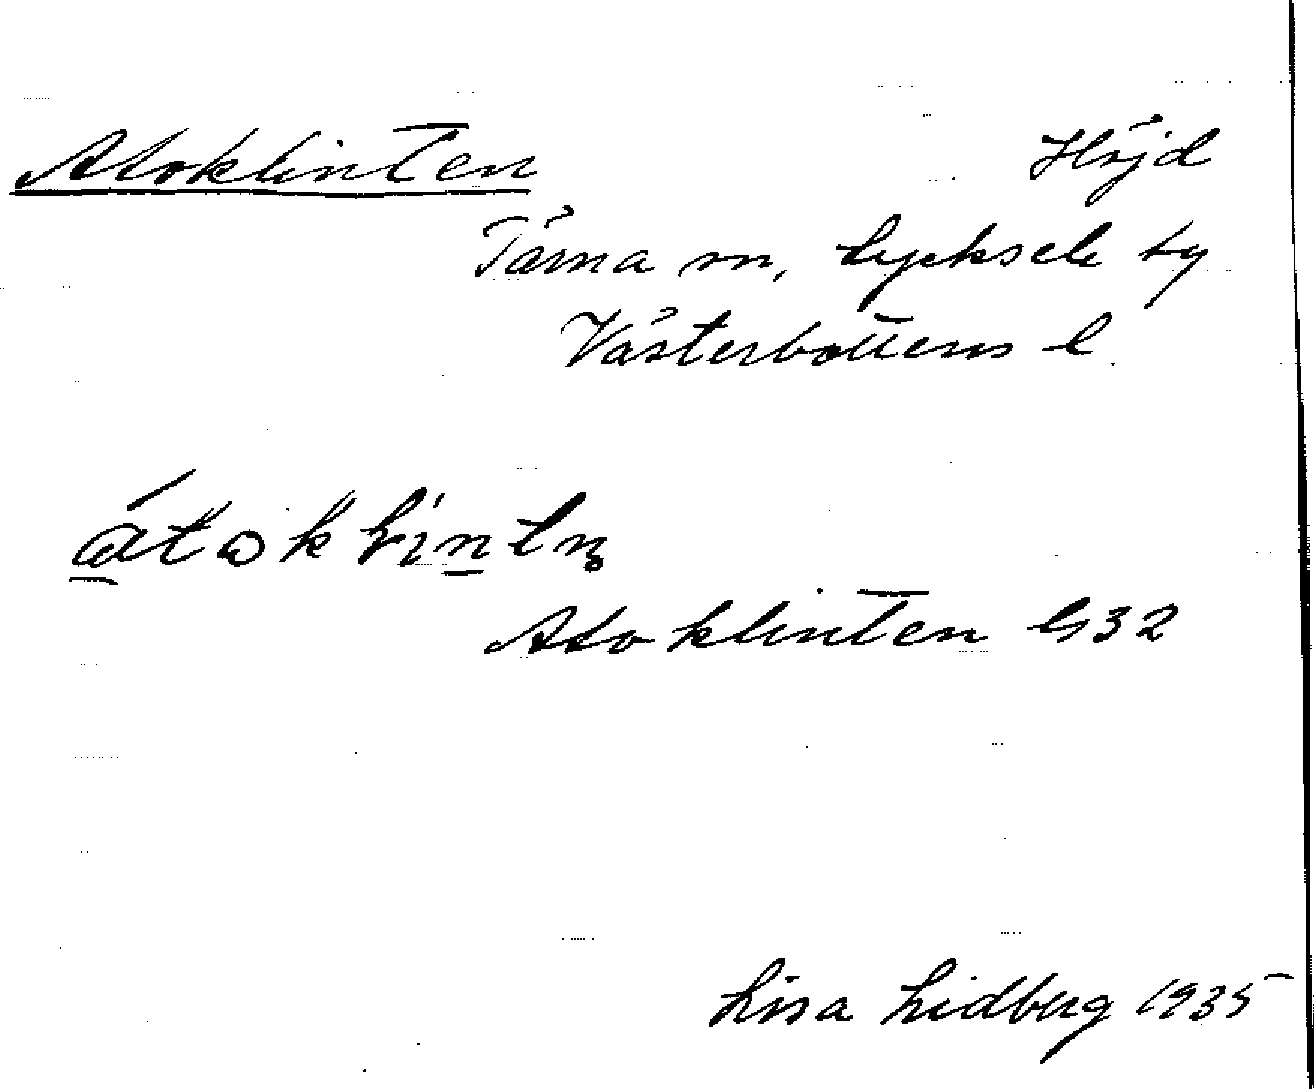 Atoklinten Höjd
Tärna sn, Lycksele ty
Västerbottens l.
Atoklinten G32
Lisa Lidberg 1935